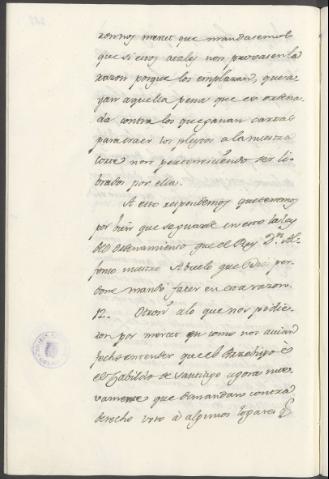 ronnos merced que mandasemos
que si estos atales non provasen la
razon porque los emplazan, que ca-
yan aquella pena que es ordena-
da contra los que ganan cartas
para traer los pleytos a la nuestra
Corte non perteneciendo ser li-
brados por ella.
A esto respondemos que tenemos
por bien que se guarde en esto la ley
del Ordenamiento que el Rey Dn. Al-
fonso nuestro Abuelo que Dios per-
done mando facer en esta razon.
12. Otrosi a lo que nos pidie-
ron por merced en como nos avian
fecho entender que el Arzobispo è
el Cabildo de Santiago agora nue-
vamente que demandan contra
derecho voto à algunos logares